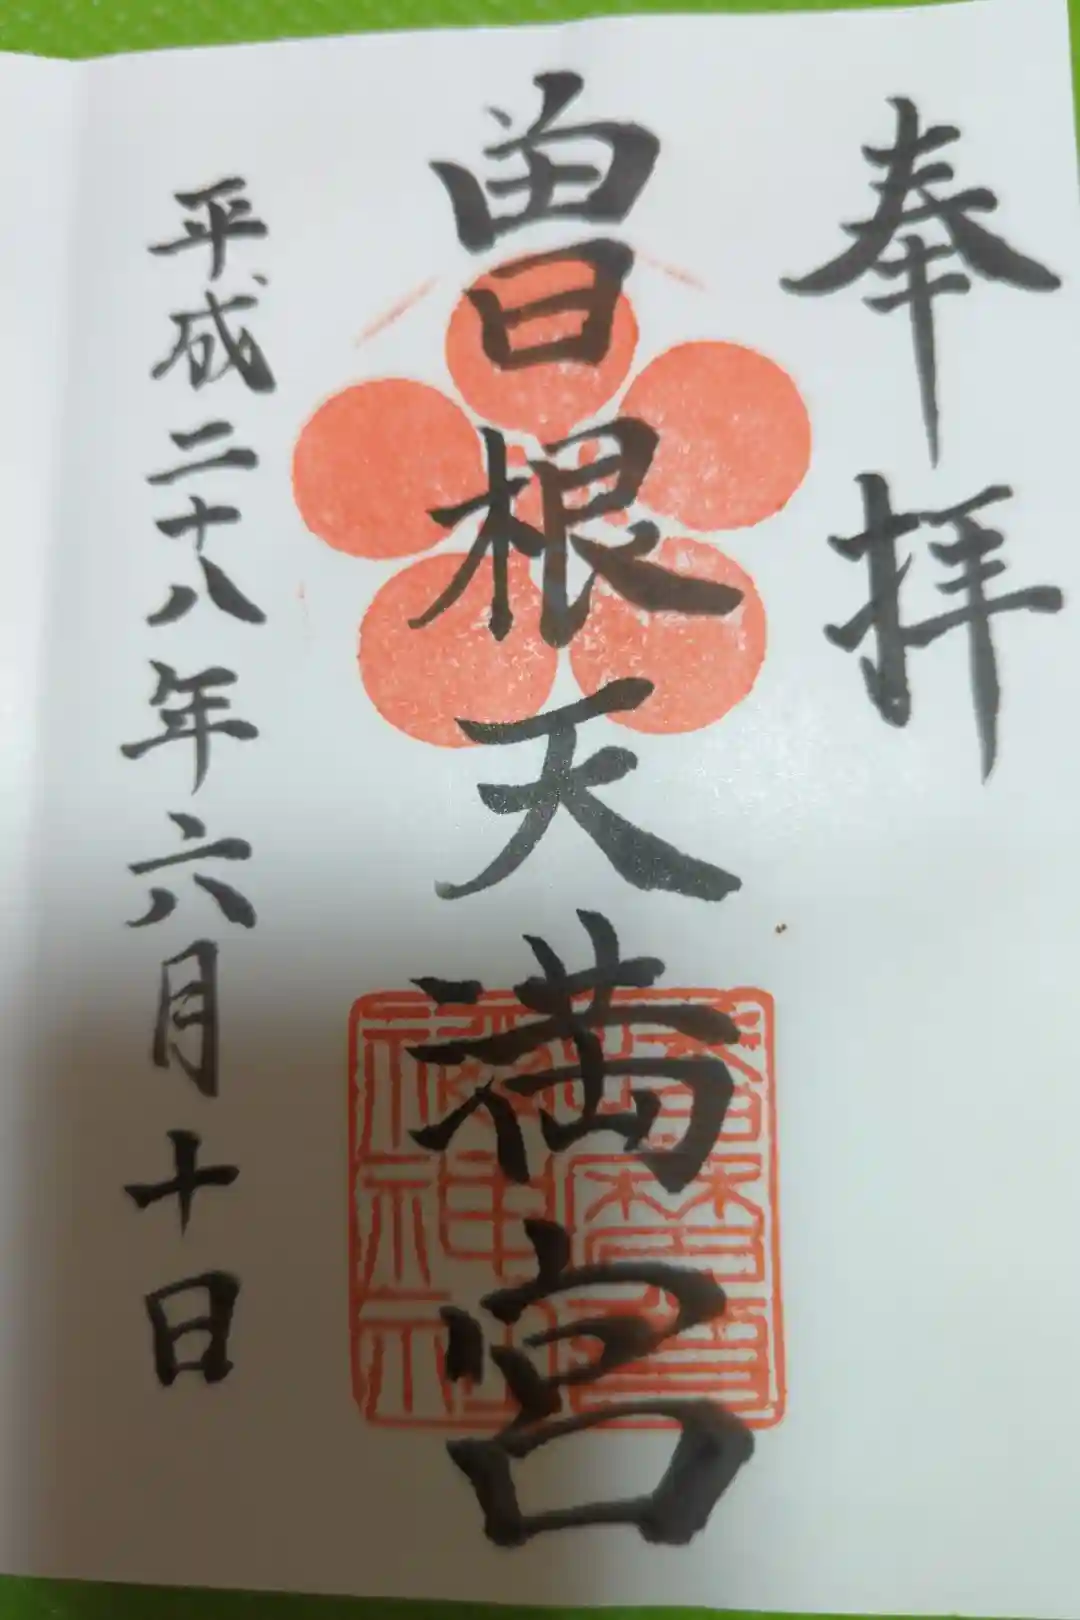 奉拝
曽根天満宮
平成二十八年六月十日